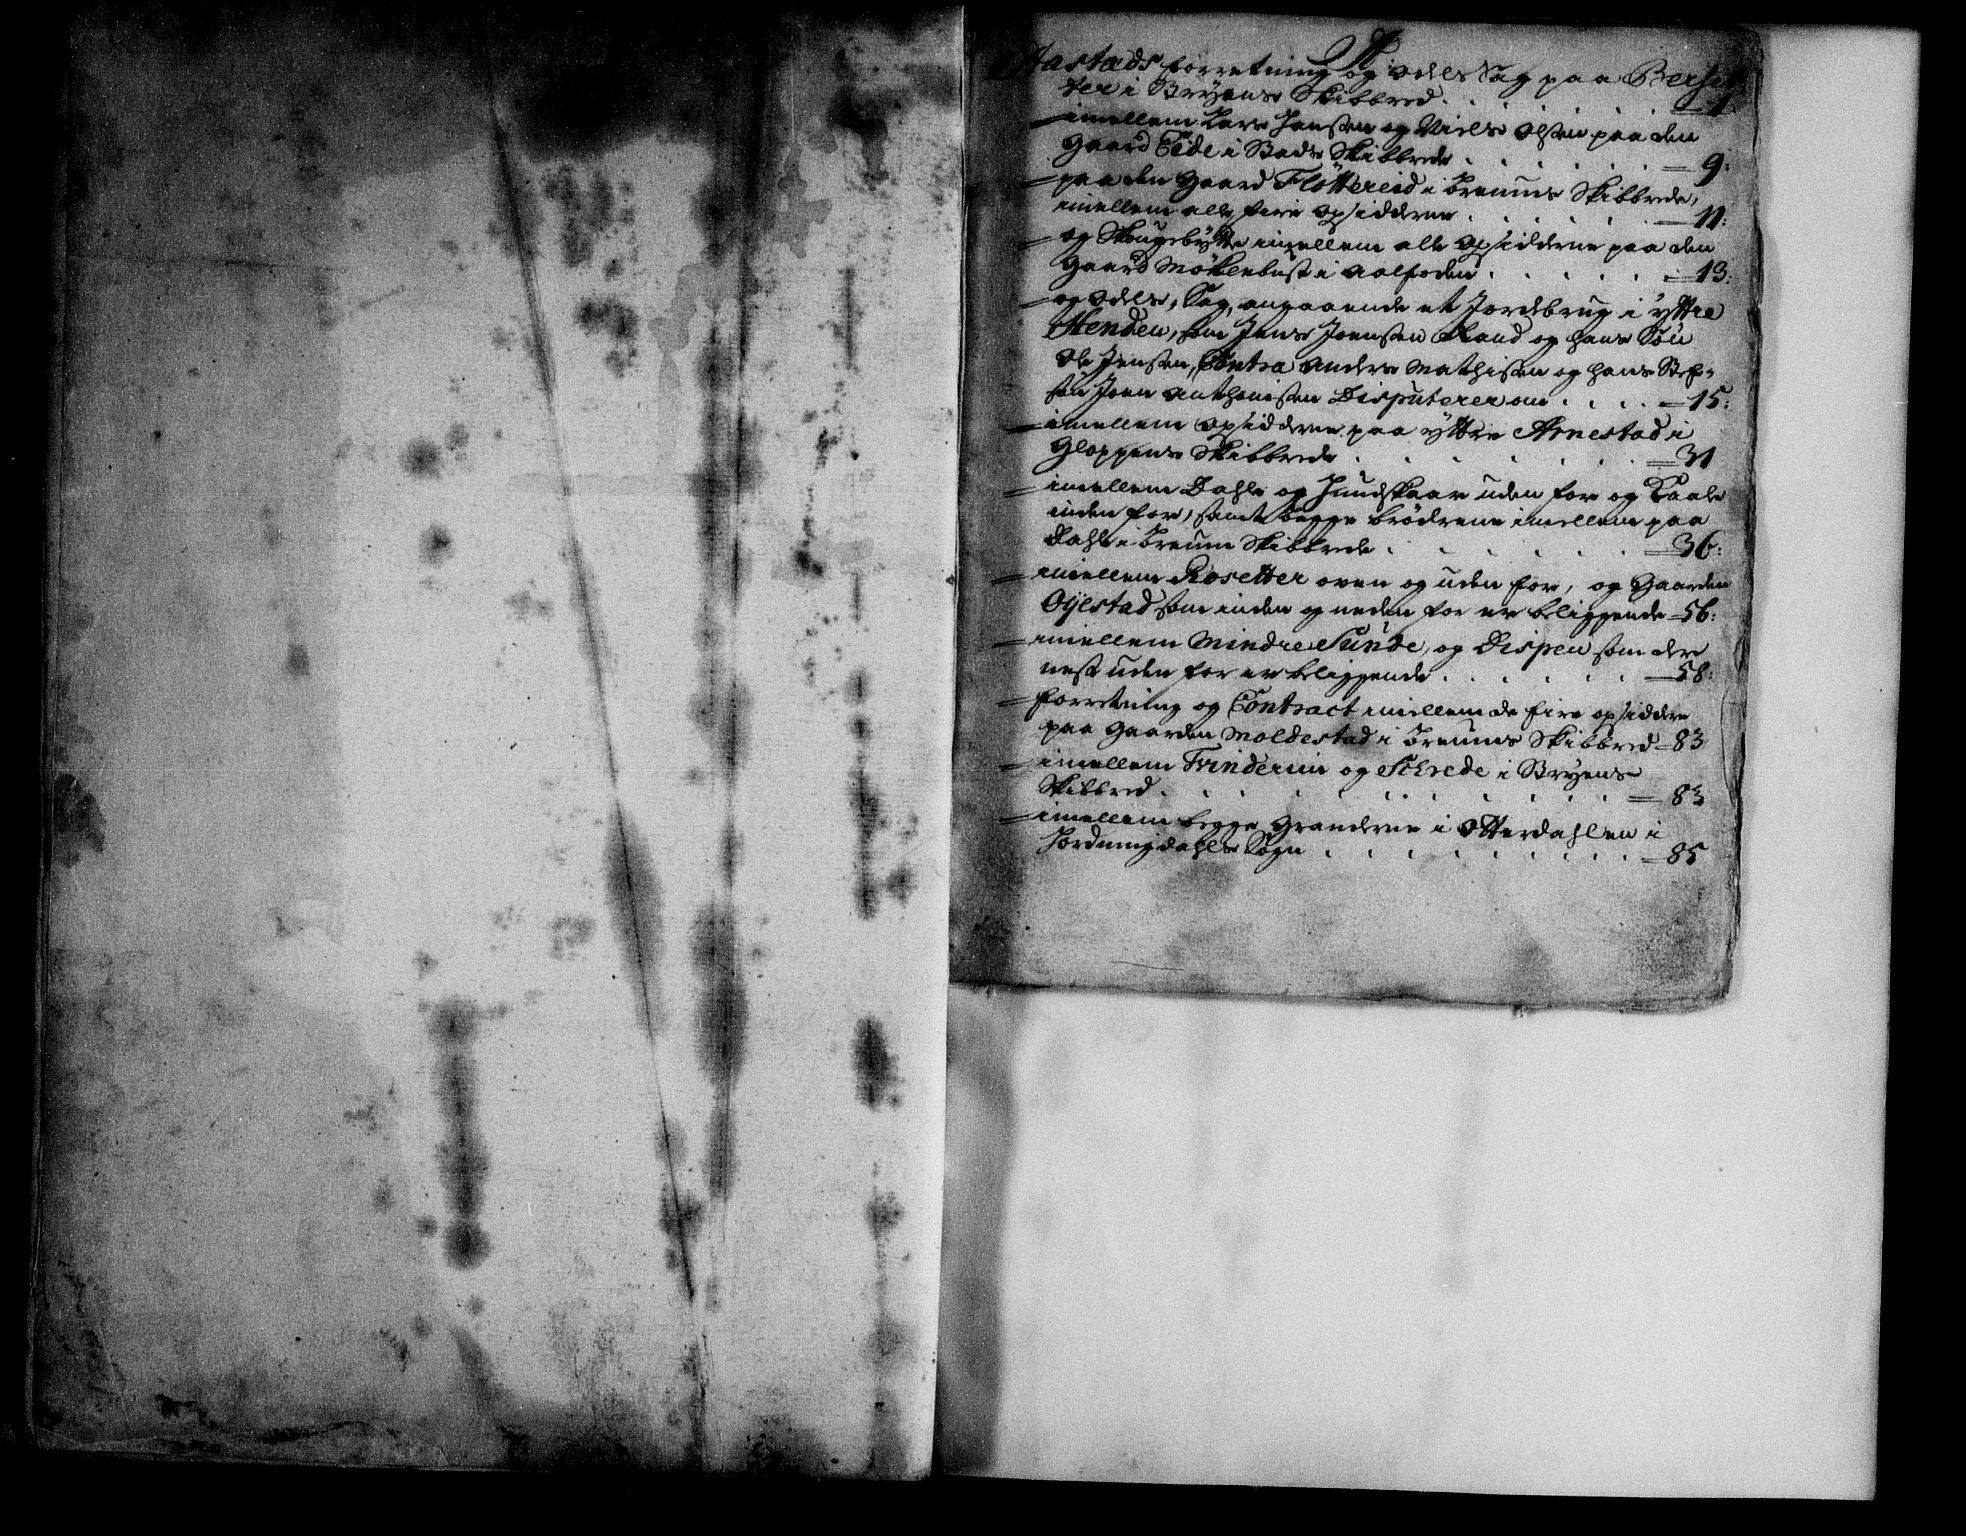 A:
Aastads forretning og odels Sag paa Bersetter
ter i Bryens Skibbred. . . . . . . 1:
= imellem Lars Jansen og Niels Olsen paa den
Gaard Eide i Stads Skibbrede . . . . . = 9:
= paa den Gaard Flöttereid i Indviigs Skibbrede,
imellem alle fire opsidderne . . . . . = 11:
= og Skougebytte imellem alle opsidderne paa den
Gaard Möklebust i Aalfoden . . . . . = 13:
= og odels, Sag, angaaende et Jordebrug i yttre
Henden, som Jens Joensen Raud og hans Sön
Ole Jensen, Contra Anders Mathisen og hans Stef-
sön Joen Anthonisen Disputerer om . . . . = 15:
= imellem opsidderne paa yttre Arnestad i
Gloppens Skibbrede . . . . . . = 31
= imellem Dahle og Hundskaar uden for og Taale
inden for, samt begge brödrene imellem paa
Dahle i Skibbrede . . . . . = 36:
= imellem Rosetter oven og uden for, og Gaarden
Oyestad som inden og neden for er beliggende = 56:
= imellem Mindre Sunde, og Dispen som der
nest uden for er beliggende . . . . . . = 58:
= forretning og Contract imellem de fire opsiddere
paa Gaarden Moldestad i Skibbred = 83
= imellem Frinderim og Schrede i Bryens
Skibbred . . . . . . . . . . = 83
= imellem begge Granderne i Otterdahlen i
Hordningdahls Sogn . . . . . . . . . = 85